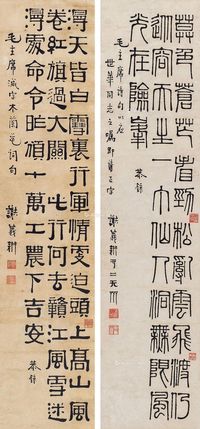 莫色蒼茫看勁松亂雲飛渡仍
從容天生一个仙人洞無限風
光在險峯 恭錄
毛主席詩句以應
世華同志之囑即請正字
謝義耕
漫天皆白雪裏行軍情更迫頭上高山風
卷紅旗過大關此行何去贛江風雪迷
漫處命令昨頒十萬工農下吉安 恭錄
毛主席減字木蘭花詞句 謝義耕